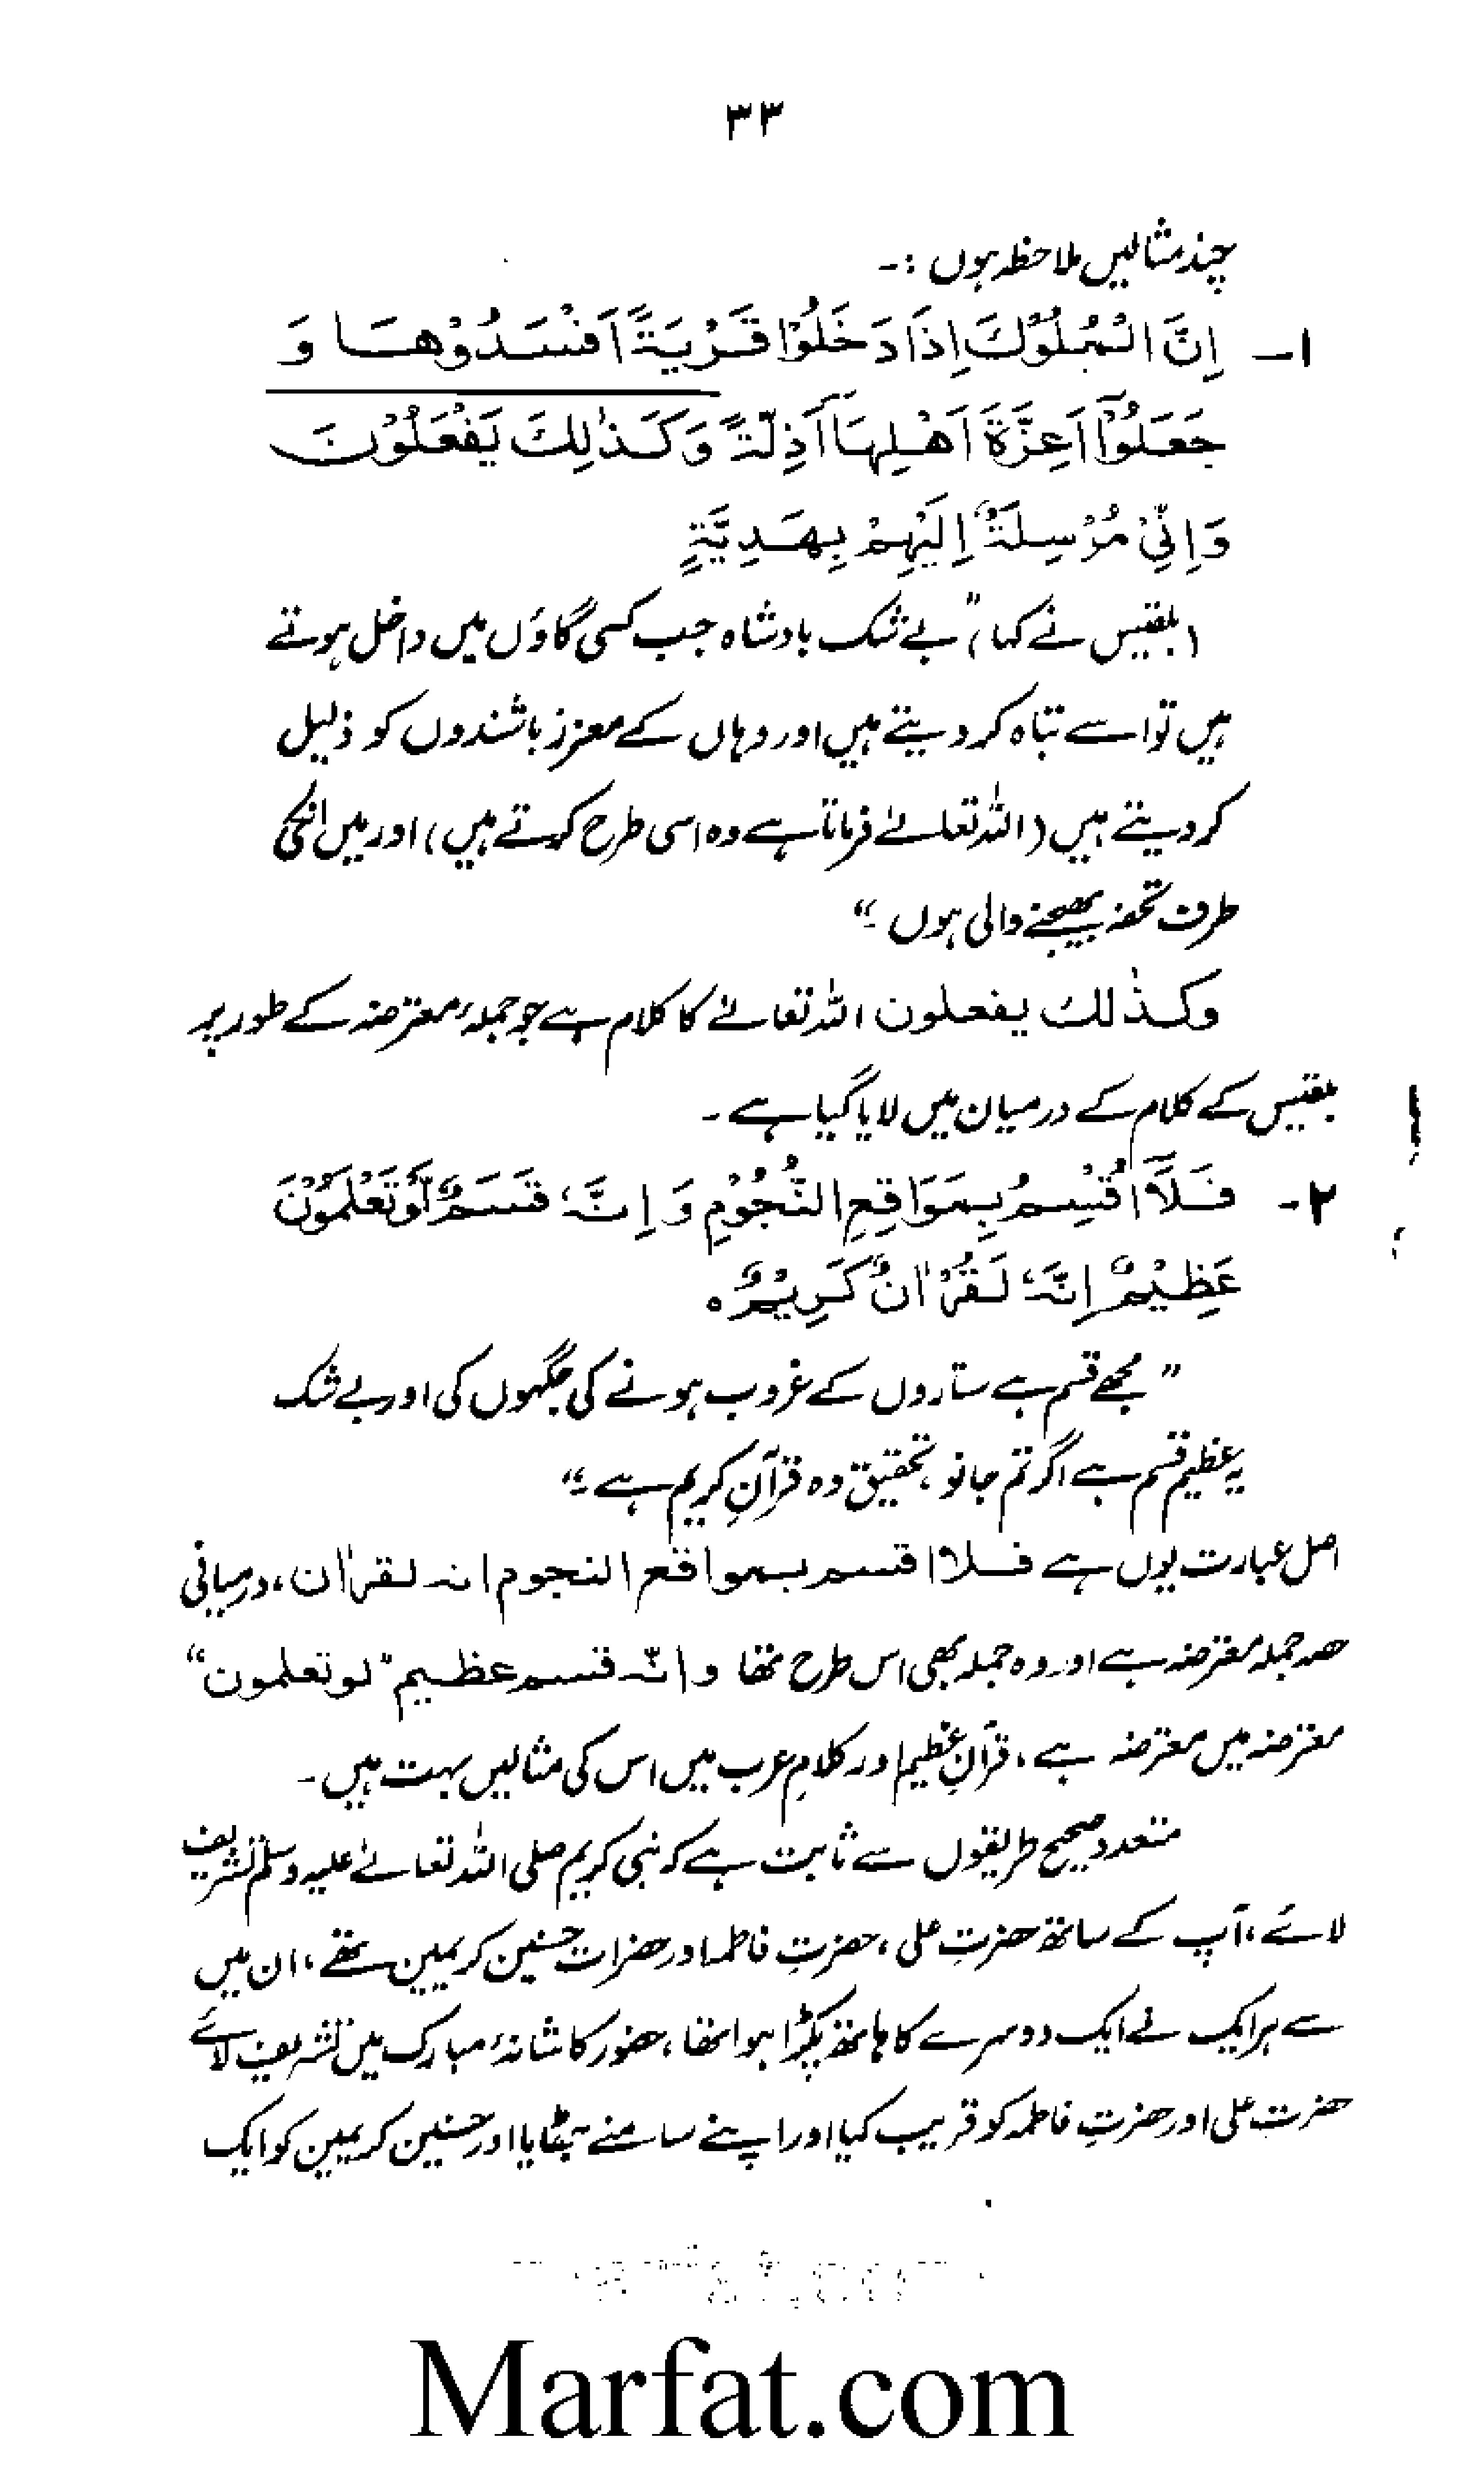 ۳۳
چند مثالیں ملاحظہ ہوں :-
۱- اِنَّ الْمُلُوْكَ اِذَا دَخَلُوْا قَرْيَةً اَفْسَدُوْهَا وَ
جَعَلُوْٓا اَعِزَّةَ اَهْلِهَآ اَذِلَّةً وَكَذٰلِكَ يَفْعَلُوْنَ
وَاِنِّيْ مُرْسِلَةٌ اِلَيْهِمْ بِهَدِيَّةٍ
(بلقیس نے کہا) ”بے شک بادشاہ جب کسی گاؤں میں داخل ہوتے
ہیں تو اسے تباہ کر دیتے ہیں اور وہاں کے معزز باشندوں کو ذلیل
کر دیتے ہیں (اللہ تعالےٰ فرماتا ہے وہ اسی طرح کرتے ہیں) اور میں انکی
طرف تحفہ بھیجنے والی ہوں ۔“
وکذٰلک یفعلون اللہ تعالےٰ کا کلام ہے جو جملہ معترضہ کے طور پر
بلقیس کے کلام کے درمیان میں لایا گیا ہے ۔
۲- فَلَآ اُقْسِمُ بِمَوَاقِعِ النُّجُوْمِ وَ اِنَّهٗ قَسَمٌ لَّوْ تَعْلَمُوْنَ
عَظِيْمٌ اِنَّهٗ لَقُرْاٰنٌ كَرِيْمٌ ه
”مجھے قسم ہے ستاروں کے غروب ہونے کی جگہوں کی اور بے شک
یہ عظیم قسم ہے اگر تم جانو ، تحقیق وہ قرآنِ کریم ہے ۔“
اصل عبارت یوں ہے فلا اقسم بمواقع النجوم انہ لقراٰن، درمیانی
حصہ جملہ معترضہ ہے اور وہ جملہ بھی اس طرح تھا وانّہ قسم عظیم ”لو تعلمون“
معترضہ میں معترضہ ہے ، قرآنِ عظیم اور کلامِ عرب میں اس کی مثالیں بہت ہیں ۔
متعدد صحیح طریقوں سے ثابت ہے کہ نبی کریم صلی اللہ تعالےٰ علیہ وسلم تشریف
لائے ، آپ کے ساتھ حضرتِ علی ، حضرتِ فاطمہ اور حضرات حسنین کریمین تھے ، ان میں
سے ہر ایک نے ایک دوسرے کا ہاتھ پکڑا ہوا تھا ، حضور کاشانۂ مبارک میں تشریف لائے
حضرت علی اور حضرتِ فاطمہ کو قریب کیا اور اپنے سامنے بٹھایا اور حسنین کریمین کو ایک
Marfat.com